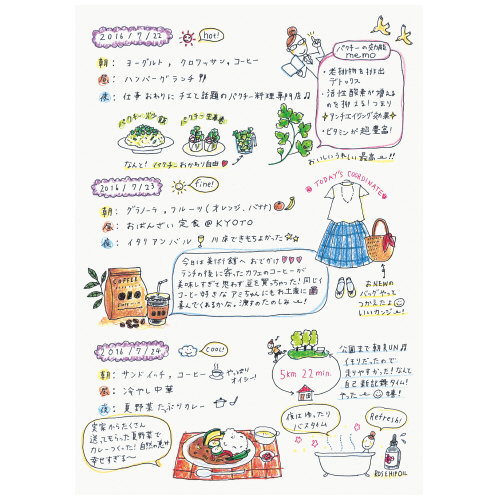 2016/7/22 hot!
朝: ヨーグルト, クロワッサン, コーヒー
昼: ハンバーグランチ!!
夜: 仕事おわりにチエと話題のパクチー料理専門店♫
パクチーの効能
memo
・老排物を排出
デトックス
・活性酸素が増える
のを抑える!つまり
アンチエイジング効果
・ビタミンが超豊富!
おいしいうれしい最高〜!!
パクチー焼そば
パクチー生春巻
なんと! パクチーおかわり自由
2016/7/23 fine!
朝: グラノーラ, フルーツ(オレンジ, バナナ)
昼: おばんざい定食@KYOTO
夜: イタリアンバル 川床できもちよかった
TODAY'S COORDINATE
今日は美術館へおでかけ
ランチの後に寄ったカフェのコーヒーが
美味しすぎて思わず豆を買っちゃった!同じく
コーヒー好きなアミちゃんにもお土産に
喜んでくれるかな。渡すのたのしみ〜!
COFFEE
おNEWの
バッグやっと
つかえたよ
いいカンジ〜!
2016/7/24 COOL!
朝: サンドイッチ, コーヒー やっぱり
オイシー!
昼: 冷やし中華
夜: 夏野菜たっぷりカレー
5km 22min.
公園まで朝RUN♫
くもりだったので
走りやすかった!なんと
自己新記録タイム!
やった〜
実家からたくさん
送ってもらった夏野菜で
カレーつくった! 自然の恵み
幸せすぎる〜
夜はゆったり
バスタイム
Refresh!
ROSEHIPOIL